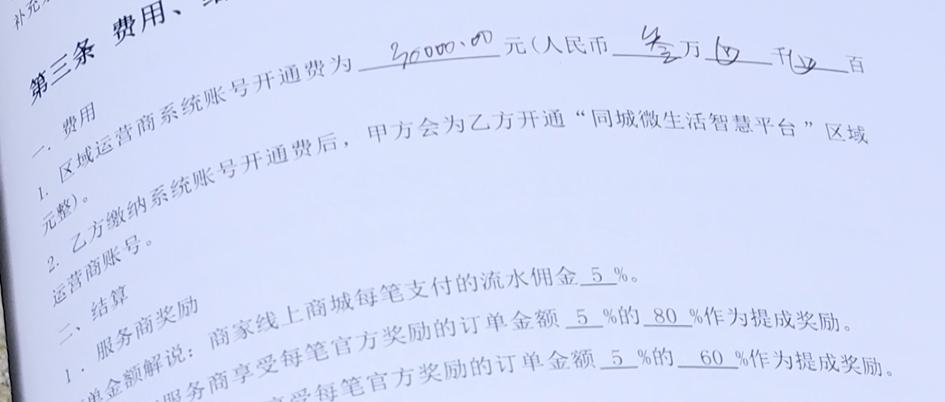 补充
第三条 费用、
一. 费用
1. 区域运营商系统账号开通费为 30000.00 元(人民币 叁万 千 百
元整)。
2. 乙方缴纳系统账号开通费后，甲方会为乙方开通“同城微生活智慧平台”区域
运营商账号。
二、结算
1. 服务商奖励
单金额解说：商家线上商城每笔支付的流水佣金 5 %。
服务商享受每笔官方奖励的订单金额 5 %的 80 %作为提成奖励。
享受每笔官方奖励的订单金额 5 %的 60 %作为提成奖励。